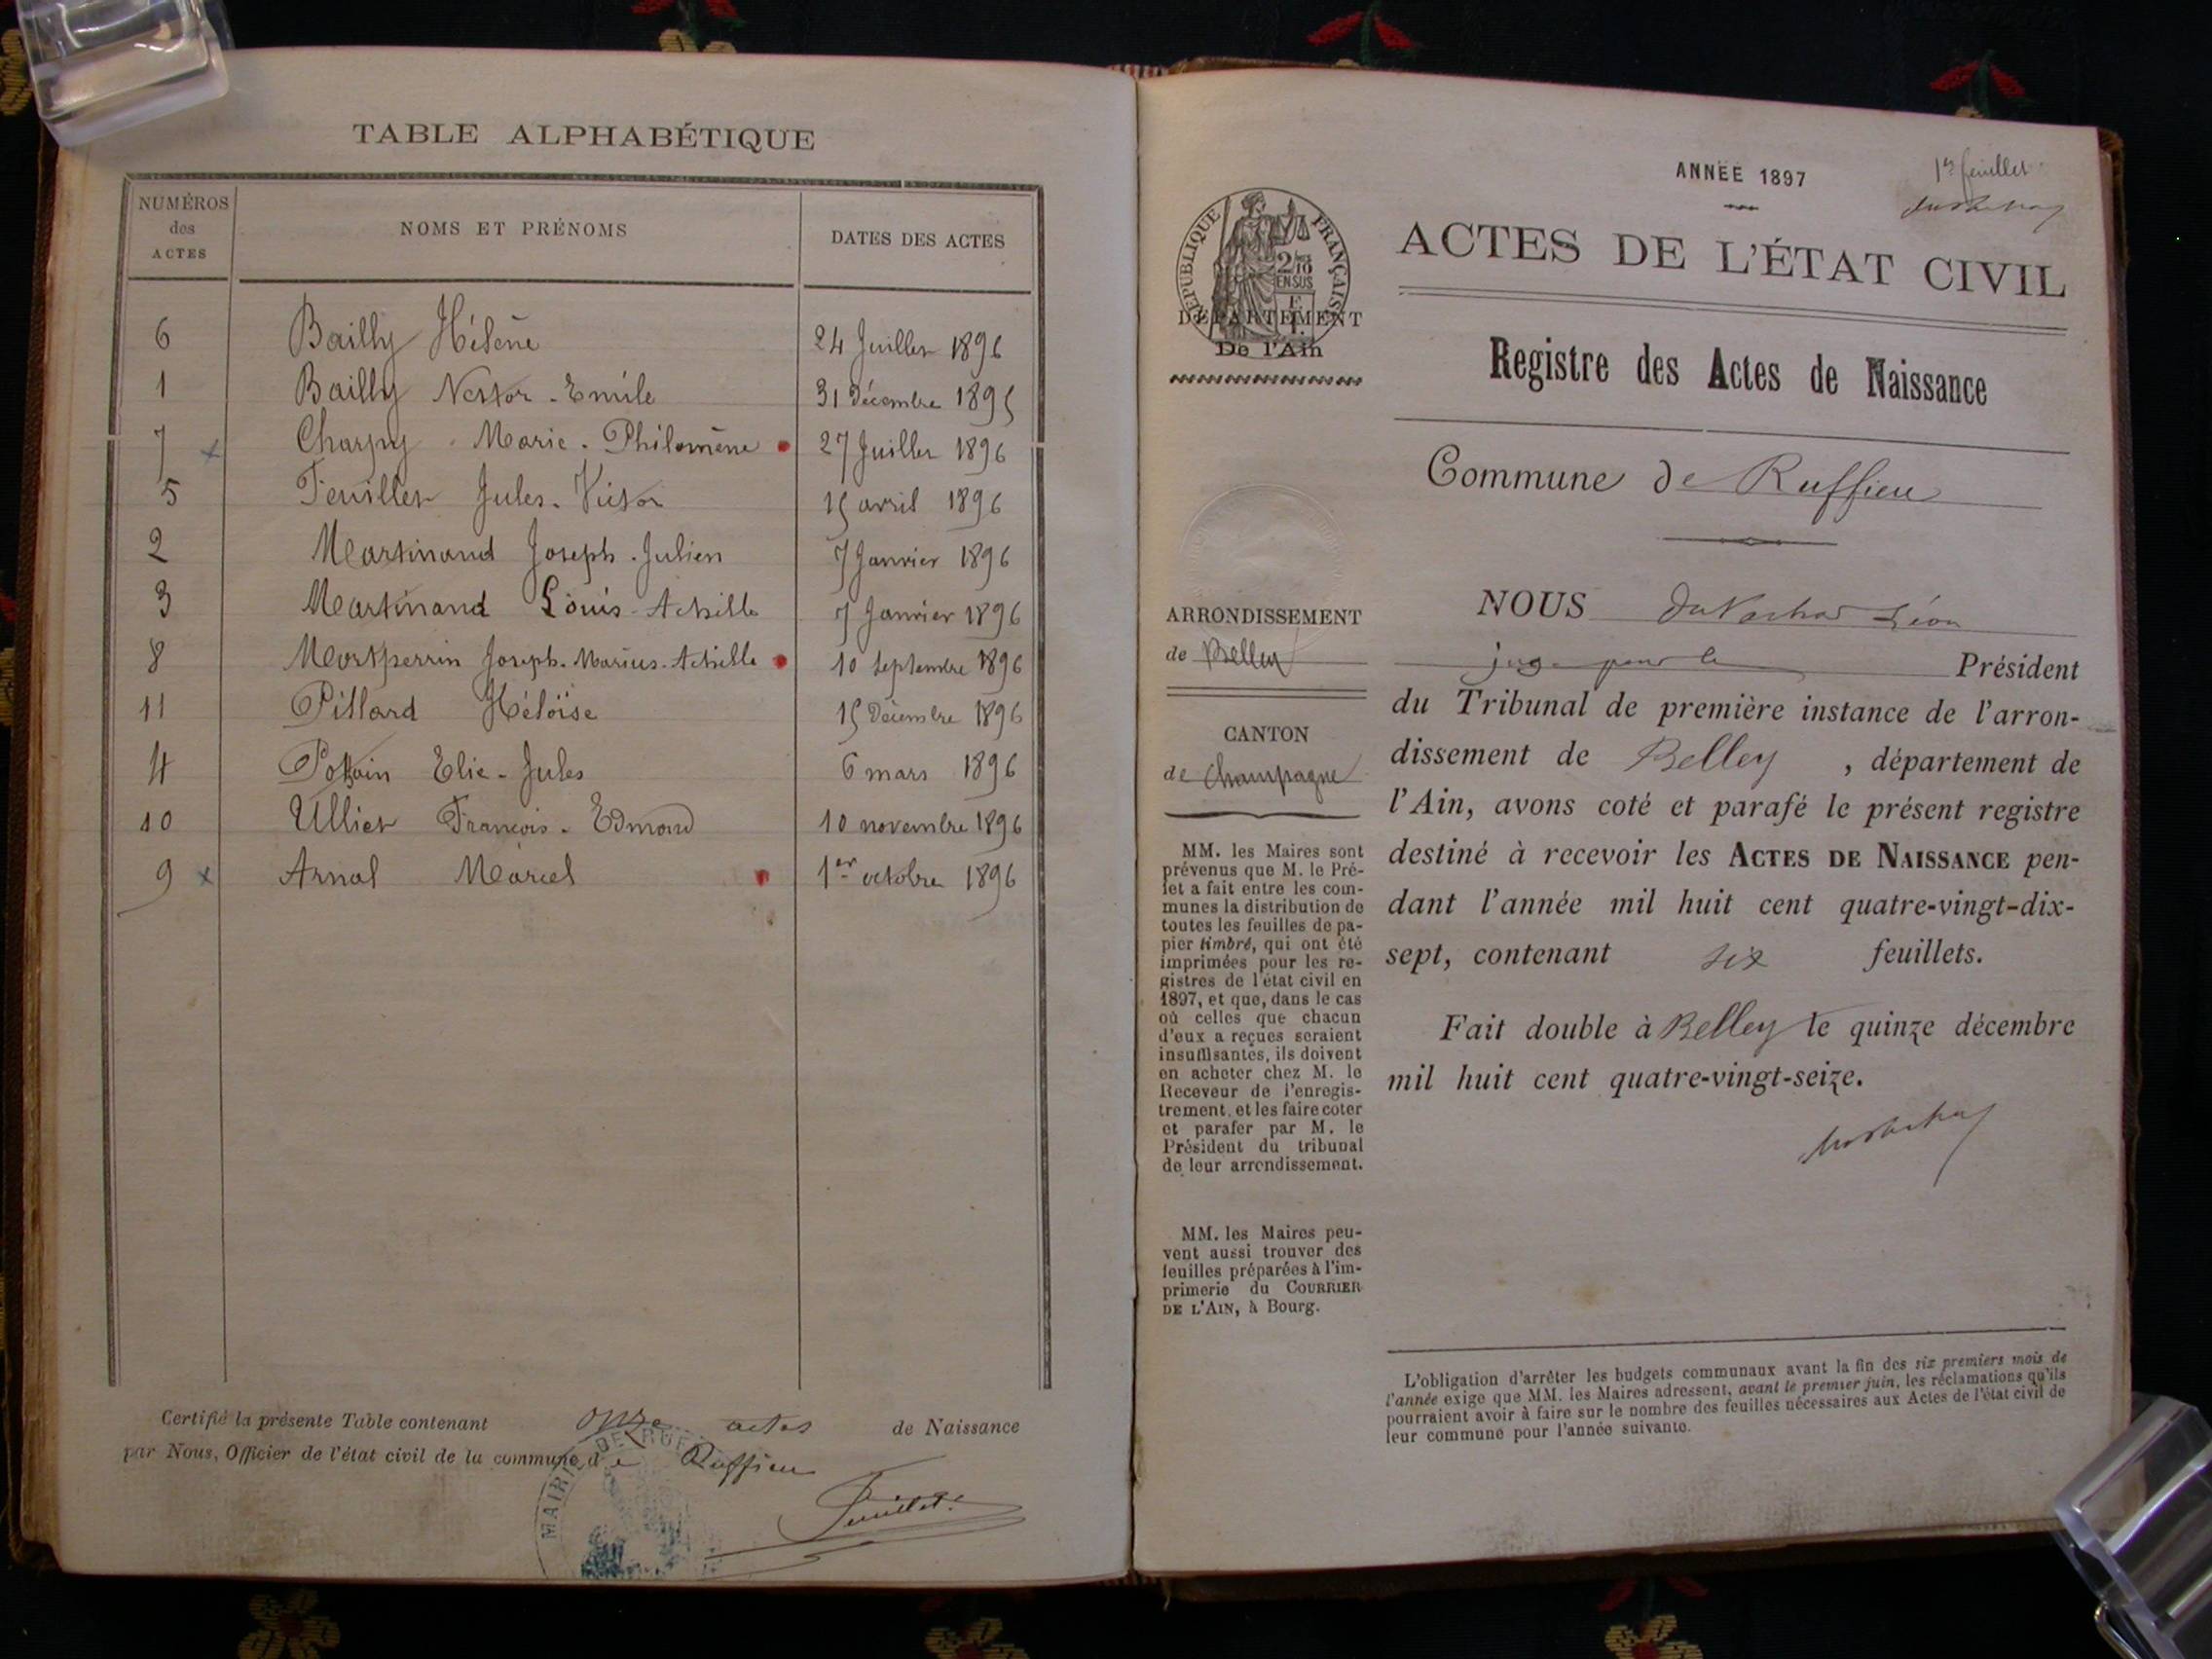 TABLE ALPHABÉTIQUE
NUMÉROS des ACTES NOMS ET PRÉNOMS DATES DES ACTES
6 Bailly Hélène 24 Juillet 1896
1 Bailly Nestor - Emile 31 Décembre 1895
7 Charpy - Marie - Philomène 27 Juillet 1896
5 Feuillet Jules - Victor 15 avril 1896
2 Martinand Joseph - Julien 7 Janvier 1896
3 Martinand Louis - Achille 7 Janvier 1896
8 Montperrin Joseph - Marius - Achille 10 Septembre 1896
11 Pillard Héloïse 15 Décembre 1896
4 Potain Elie - Jules 6 mars 1896
10 Ulliet François - Edmond 10 novembre 1896
9 Arnal Marcel 1er octobre 1896
Certifié la présente Table contenant onze actes de Naissance
par Nous, Officier de l'état civil de la commune de Ruffieu
MAIRIE DE RUF
Feuillet
ANNÉE 1897
1er feuillet
RÉPUBLIQUE FRANÇAISE
2/10 EN SUS
DÉPARTEMENT
De l'Ain
ACTES DE L'ÉTAT CIVIL
Registre des Actes de Naissance
Commune de Ruffieu
ARRONDISSEMENT
de Belley
CANTON
de Champagne
MM. les Maires sont
prévenus que M. le Pré-
fet a fait entre les com-
munes la distribution de
toutes les feuilles de pa-
pier timbré, qui ont été
imprimées pour les re-
gistres de l'état civil en
1897, et que, dans le cas
où celles que chacun
d'eux a reçues seraient
insuffisantes, ils doivent
en acheter chez M. le
Receveur de l'enregis-
trement, et les faire coter
et parafer par M. le
Président du tribunal
de leur arrondissement.
MM. les Maires peu-
vent aussi trouver des
feuilles préparées à l'im-
primerie du COURRIER
DE L'AIN, à Bourg.
NOUS Léon
juge pour le Président
du Tribunal de première instance de l'arron-
dissement de Belley, département de
l'Ain, avons coté et parafé le présent registre
destiné à recevoir les ACTES DE NAISSANCE pen-
dant l'année mil huit cent quatre-vingt-dix-
sept, contenant six feuillets.
Fait double à Belley le quinze décembre
mil huit cent quatre-vingt-seize.
L'obligation d'arrêter les budgets communaux avant la fin des six premiers mois de
l'année exige que MM. les Maires adressent, avant le premier juin, les réclamations qu'ils
pourraient avoir à faire sur le nombre des feuilles nécessaires aux Actes de l'état civil de
leur commune pour l'année suivante.